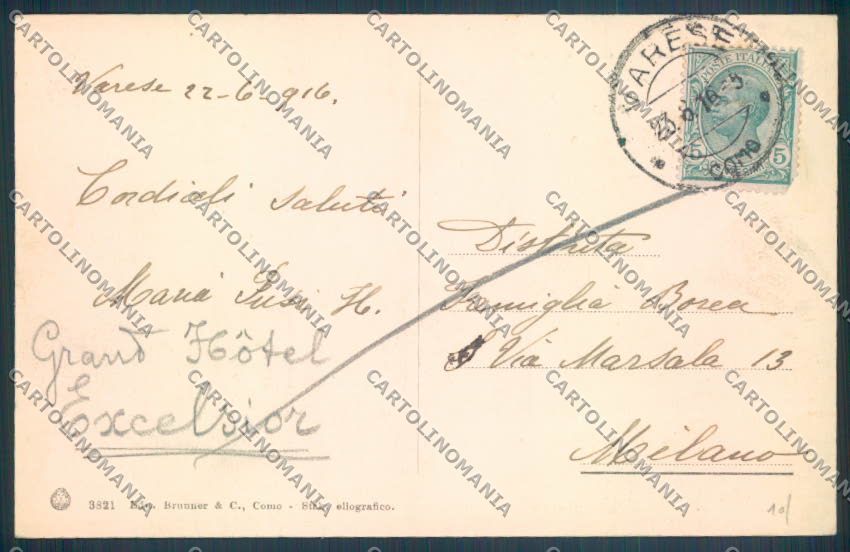 Varese 22-6-916.
Cordiali saluti
Maria H.
Grand Hôtel
Excelsior
VARESE
COMO
POSTE ITALIANE
5
Distinta
Famiglia Borea
Via Marsala 13
Milano
3821 Brunner & C., Como - Stab. eliografico.
10/
CARTOLINOMANIA